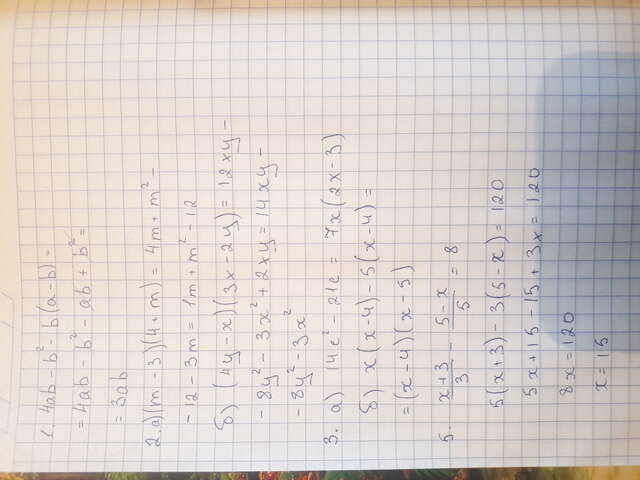 1. 4ab - b² - b(a - b) =
= 4ab - b² - ab + b² =
= 3ab
2. а) (m - 3)(4 + m) = 4m + m² -
- 12 - 3m = 1m + m² - 12
б) (4y - x)(3x - 2y) = 12xy -
- 8y² - 3x² + 2xy = 14xy -
- 8y² - 3x²
3. а) 14c² - 21c = 7x(2x - 3)
б) x(x - 4) - 5(x - 4) =
= (x - 4)(x - 5)
5. (x + 3)/3 - (5 - x)/5 = 8
5(x + 3) - 3(5 - x) = 120
5x + 15 - 15 + 3x = 120
8x = 120
x = 15